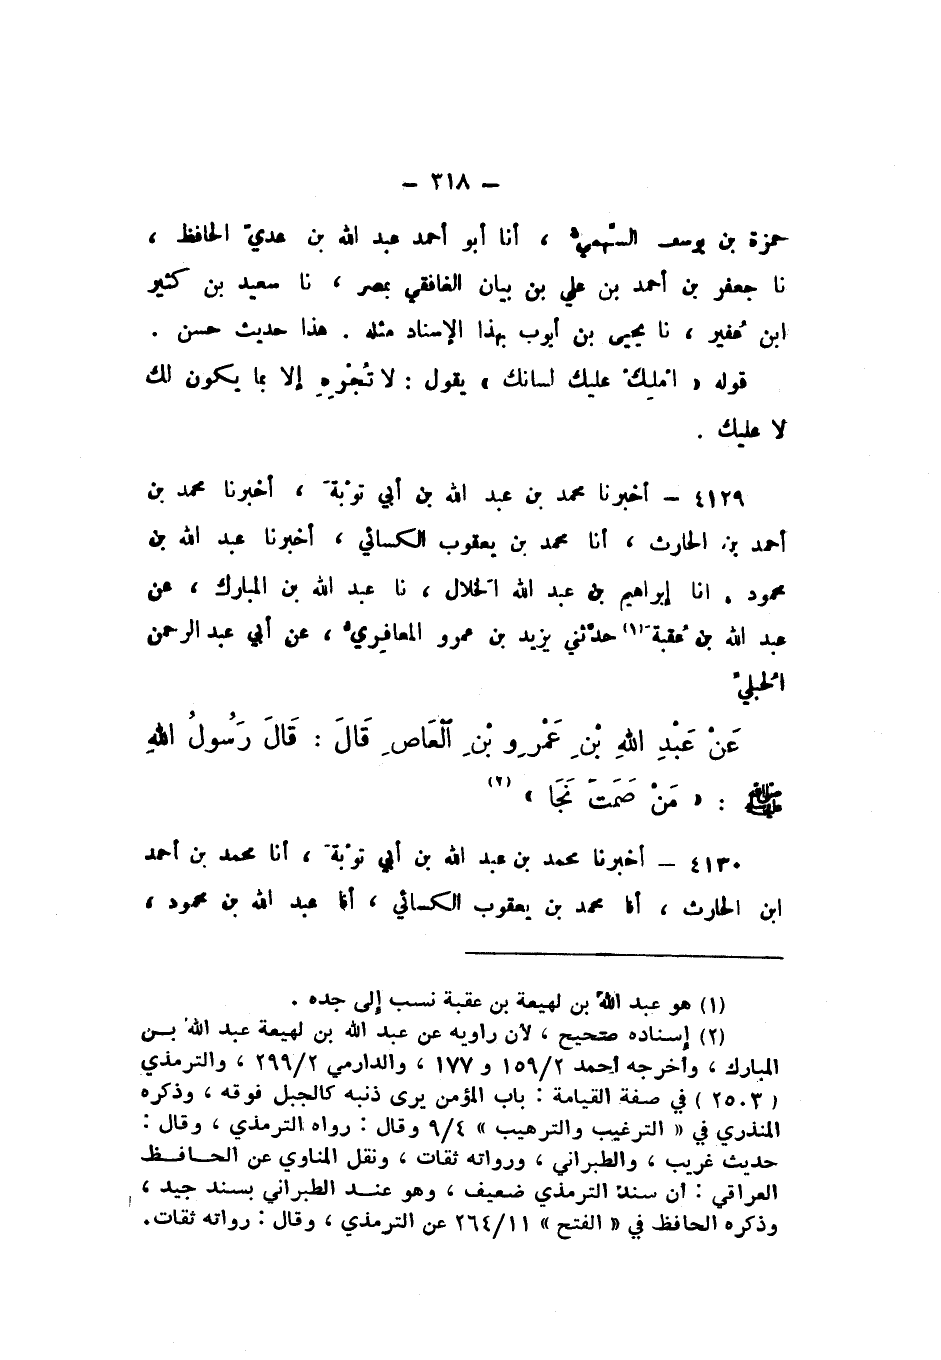 – ٣١٨ –
حمزة بن يوسف السَّهميُّ ، أنا أبو أحمد عبد الله بن عديّ الحافظ ،
نا جعفر بن أحمد بن علي بن بيان الغافقي بمصر ، نا سعيد بن كثير
ابن عُفير ، نا يحيى بن أيوب بهذا الإسناد مثله . هذا حديث حسن .
قوله « امْلِكْ عليك لسانك » يقول : لا تُجْرِهِ إلا بما يكون لك
لا عليك .
٤١٢٩ – أخبرنا محمد بن عبد الله بن أبي توْبةَ ، أخبرنا محمد بن
أحمد بن الحارث ، أنا محمد بن يعقوب الكسائي ، أخبرنا عبد الله بن
محمود . انا إبراهيم بن عبد الله الخلال ، نا عبد الله بن المبارك ، عن
عبد الله بن عُقبةَ (١) حدَّثني يزيد بن عمرو المعافِريُّ ، عن أبي عبد الرحمن
الحُبليّ
عَنْ عَبْدِ اللهِ بْنِ عَمْرِو بْنِ الْعَاصِ قَالَ : قَالَ رَسُولُ اللهِ
ﷺ : « مَنْ صَمَتَ نَجَا » (٢)
٤١٣٠ – أخبرنا محمد بن عبد الله بن أبي توْبةَ ، أنا محمد بن أحمد
ابن الحارث ، أنا محمد بن يعقوب الكسائي ، أنا عبد الله بن محمود ،
(١) هو عبد الله بن لهيعة بن عقبة نسب إلى جده .
(٢) إسناده صحيح ، لأن راويه عن عبد الله بن لهيعة عبد الله بن
المبارك ، وأخرجه أحمد ١٥٩/٢ و ١٧٧ ، والدارمي ٢٩٩/٢ ، والترمذي
( ٢٥٠٣ ) في صفة القيامة : باب المؤمن يرى ذنبه كالجبل فوقه ، وذكره
المنذري في « الترغيب والترهيب » ٩/٤ وقال : رواه الترمذي ، وقال :
حديث غريب ، والطبراني ، ورواته ثقات ، ونقل المناوي عن الحافظ
العراقي : أن سند الترمذي ضعيف ، وهو عند الطبراني بسند جيد ،
وذكره الحافظ في « الفتح » ٢٦٤/١١ عن الترمذي ، وقال : رواته ثقات.